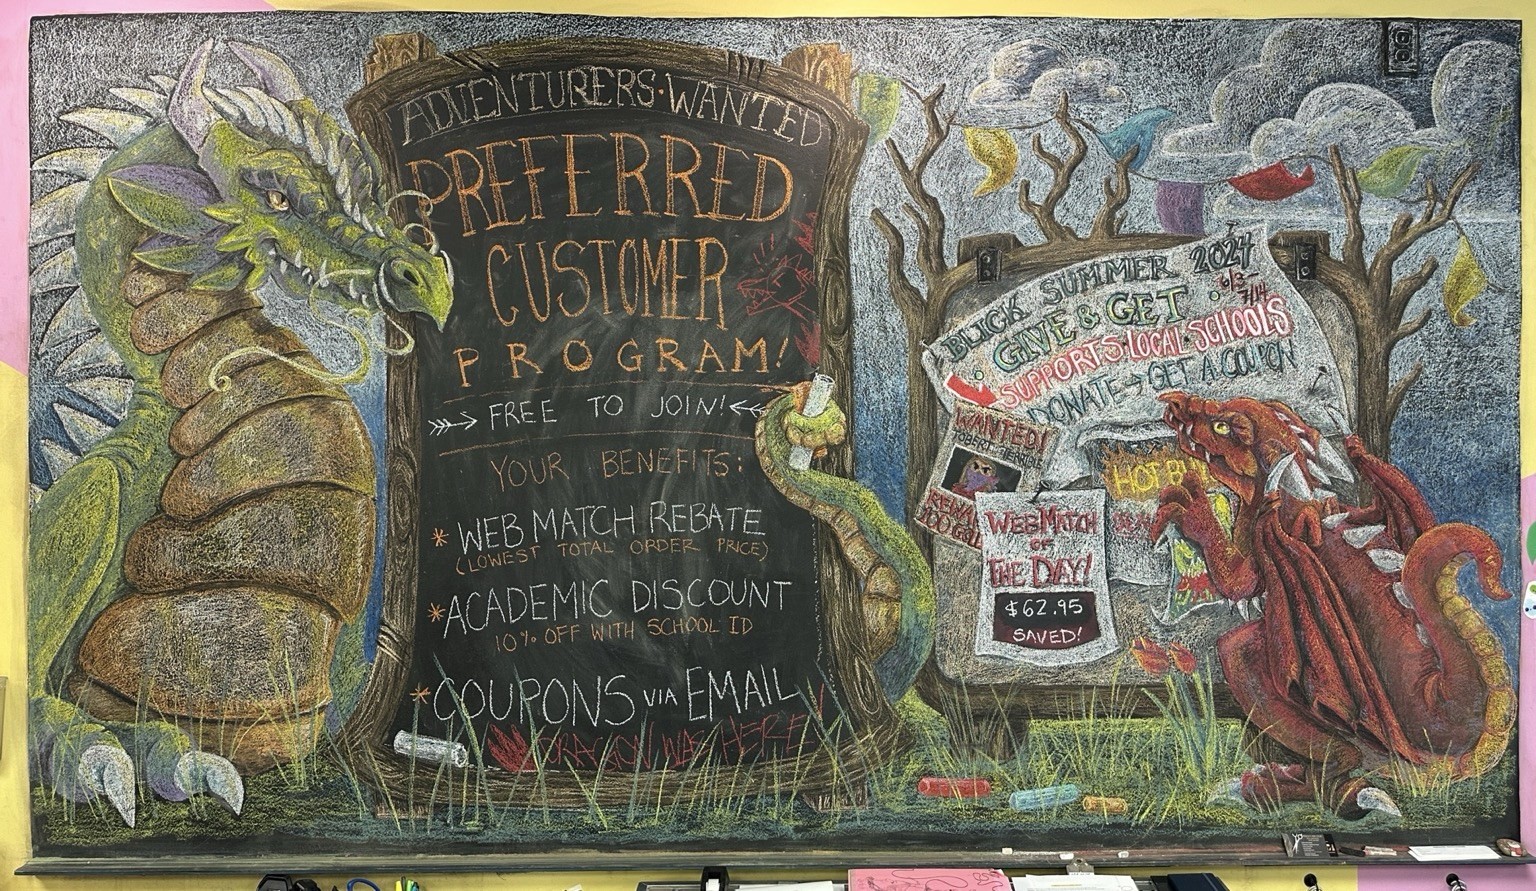 ADVENTURERS·WANTED
PREFERRED
CUSTOMER
PROGRAM!
FREE TO JOIN!
YOUR BENEFITS:
* WEB MATCH REBATE
(LOWEST TOTAL ORDER PRICE)
* ACADEMIC DISCOUNT
10% OFF WITH SCHOOL ID
* COUPONS VIA EMAIL
DRAGON WAS HERE!
BLICK SUMMER 2024
· GIVE & GET · 6/3-
7/14
SUPPORTS·LOCAL·SCHOOLS
DONATE → GET A COUPON
WANTED!
HOT BU
WEB MATCH
OF
THE DAY!
$62.95
SAVED!